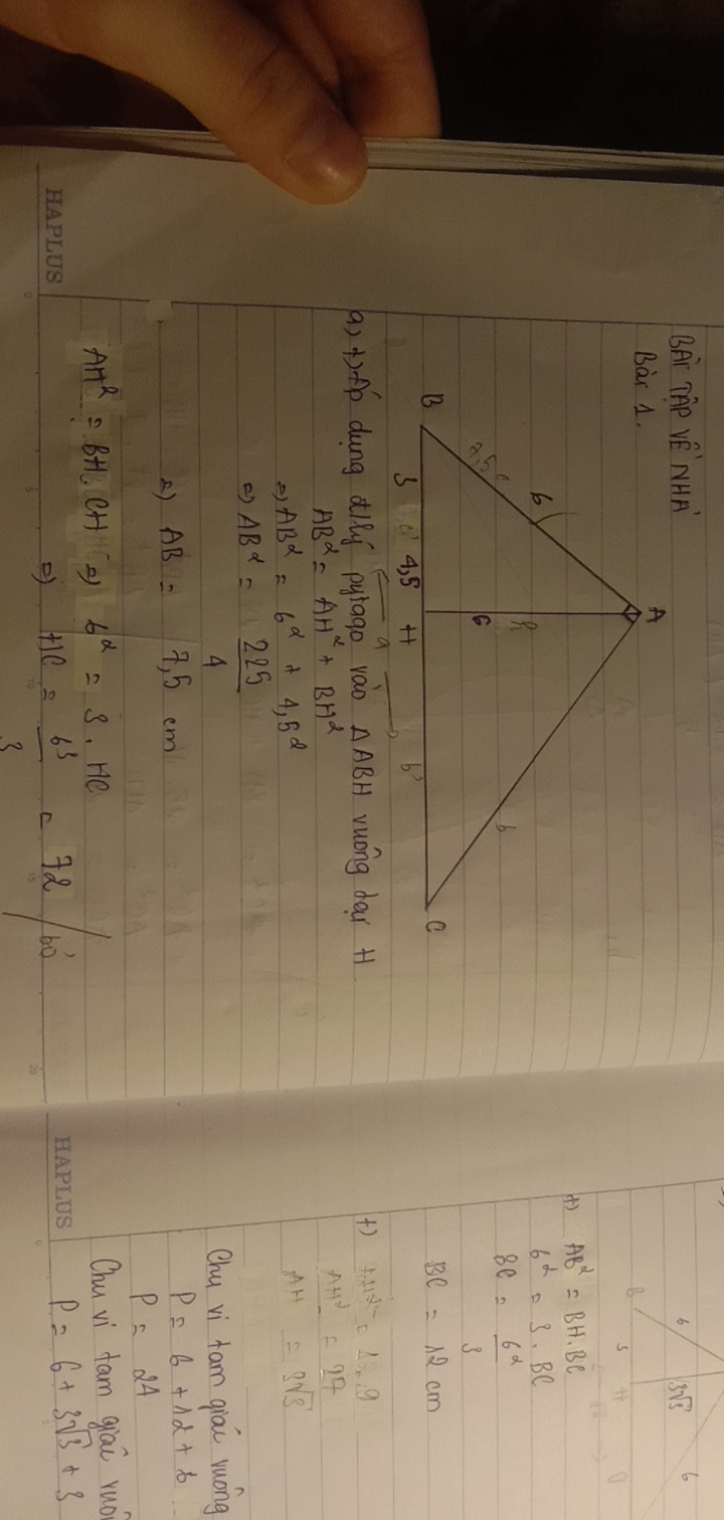 BÀI TẬP VỀ NHÀ
Bài 1.
A
6
7,5
h
6
b
B
3
c' 4,5
H
b'
C
a
a) +) Áp dụng đ/lý pytago vào ΔABH vuông tại H
AB² = AH² + BH²
=) AB² = 6² + 4,5²
=) AB² = 225
4
=) AB = 7,5 cm
AH² = BH. CH =) 6² = 3. HC
=) HC = 6³ = 72
3
bỏ
HAPLUS
6
3√3
6
B
3
H
9
+) AB² = BH.BC
6² = 3. BC
BC = 6²
3
BC = 12 cm
+)
AH² = 27
AH = 3√3
Chu vi tam giác vuông
P = 6 + 12 + 6
P = 24
Chu vi tam giác vuôn
P = 6 + 3√3 + 3
HAPLUS